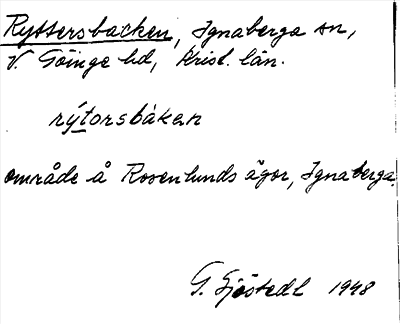 Ryttersbacken, Ignaberga sn,
V. Göinge hd, Krist. län.
rýtorsbàkan
område å Rosenlunds ägor, Ignaberga.
G. Sjöstedt 1948